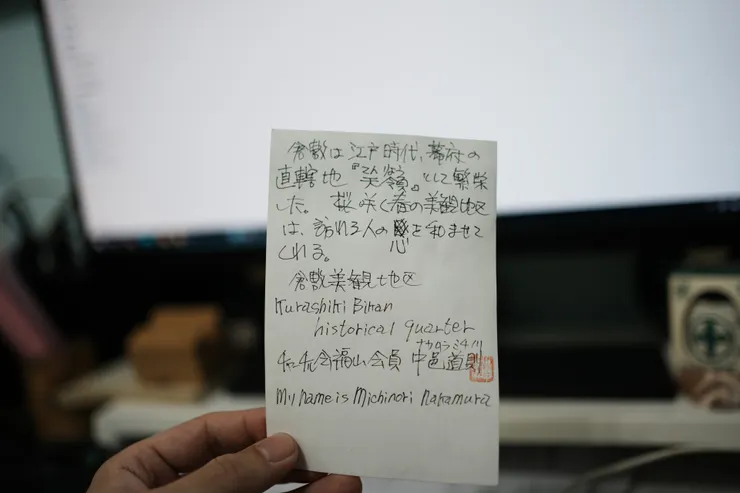 倉敷は江戸時代、幕府の
直轄地『天領』として繁栄
した。桜咲く春の美観地区
は、訪れる人の心を和ませて
くれる。
倉敷美観地区
Kurashiki Bikan
historical quarter
ナカムラミチノリ
福山会員 中邑道則
My name is Michinori Nakamura